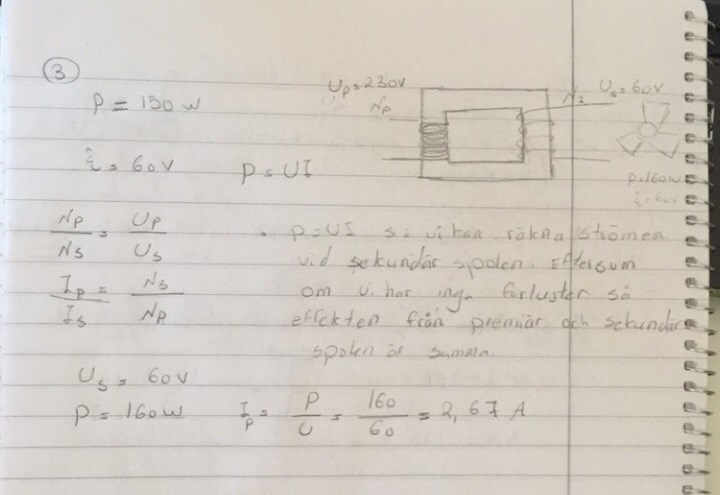 3
P = 150 w
Up = 230V
Np
N2
Us = 60V
P = 160w
î = 60V
î = 60V
P = UI
Np/Ns = Up/Us
Ip/Is = Ns/Np
• P = UI så vi kan räkna strömen
vid sekundär spolen. Eftersum
om vi har inga forluster så
effekten från premiär och sekundär
spolen är samma.
Us = 60V
P = 160w
Ip = P/U = 160/60 = 2,67 A